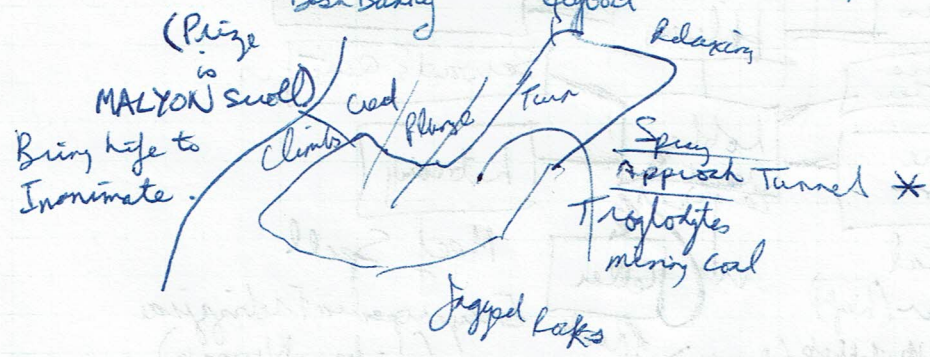 (Prize
is
MALYON Scroll)
Bring Life to
Inanimate.
Climbs
Plunge
Turn
Relaxing
Spray
Approach Tunnel *
Troglodytes
mining coal
Jagged Rocks